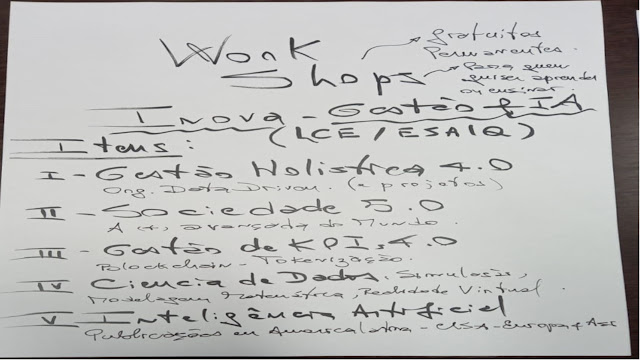 Work
Shops
Gratuitos
Permanentes.
Para quem
quiser aprender
ou ensinar
Inova - Gestão & IA
(LCE/ESALQ)
Itens:
I - Gestão Holística 4.0
Org. Data Driven. (e projetos)
II - Sociedade 5.0
A (+) avançada do Mundo.
III - Gestão de KPI's 4.0
Blockchain - Tokenização.
IV Ciencia de Dados. Simulação,
Modelagem Matemática, Realidade Virtual.
V Inteligência Artificial
Publicações em America Latina - USA - Europa &